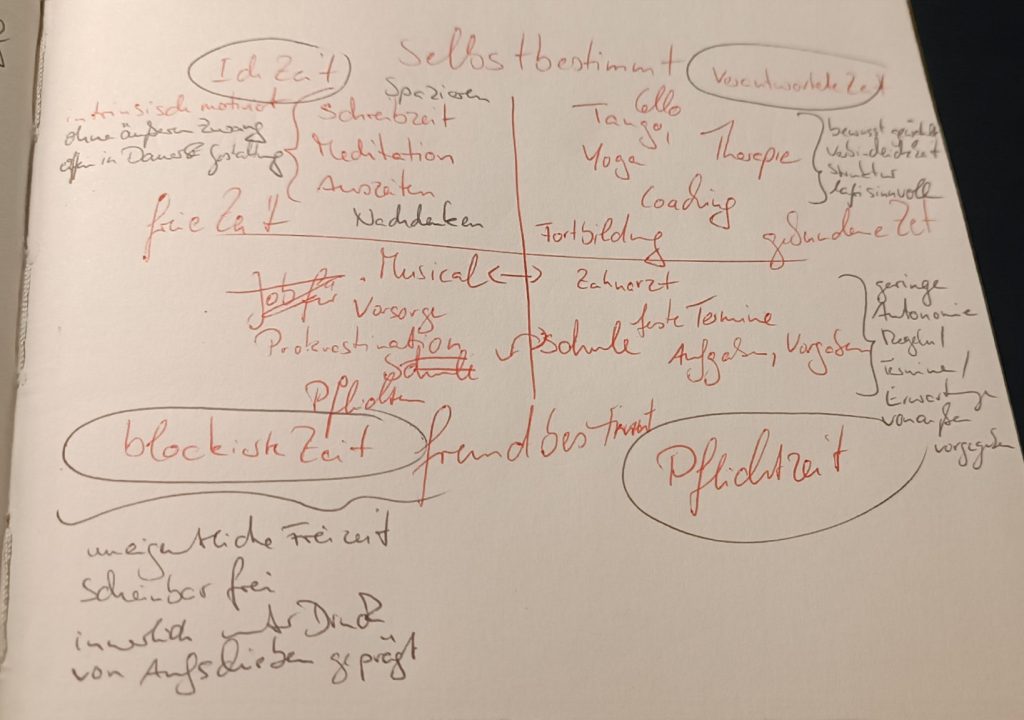 Selbstbestimmt
Ich Zeit
Verantwortete Zeit
intrinsisch motiviert
ohne äußeren Zwang
offen in Dauer & Gestaltung
Spazieren
Schreibzeit
Meditation
Auszeiten
Nachdenken
Cello
Tango,
Yoga
Therapie
Coaching
Fortbildung
bewusst
Struktur
sinnvoll
freie Zeit
gebundene Zeit
Job für
Musical <-> Zahnarzt
Vorsorge
Prokrastination
Schule
Pflichten
Schule
feste Termine
Aufgaben, Vorgaben
geringe
Autonomie
Regeln /
Termine /
Erwartunge
von außen
vorgegeben
blockierte Zeit
fremdbestimmt
Pflichtzeit
uneigentliche Freizeit
scheinbar frei
innerlich unter Druck
von Aufschieben geprägt